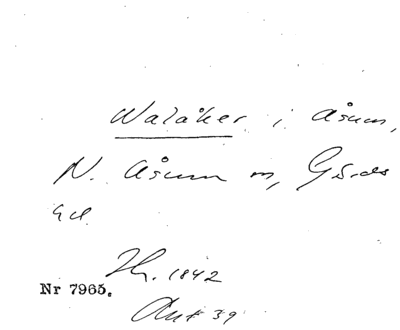 Walåker i Åsum,
N. Åsum sn, Gärds
hd
Th. 1842
Nr 7965.
Ant 39